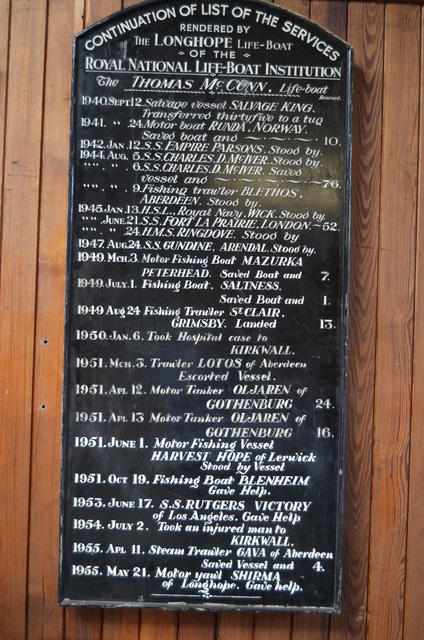 CONTINUATION OF LIST OF THE SERVICES
RENDERED BY
THE LONGHOPE LIFE-BOAT
OF THE
ROYAL NATIONAL LIFE-BOAT INSTITUTION
The THOMAS McCUNN, Life-boat
Rescued.
1940. SEPT 12. Salvage vessel SALVAGE KING.
Transferred thirtyfive to a tug
1941. " 24. Motor boat RUNDA, NORWAY.
Saved boat and 10.
1942. JAN. 12. S.S. EMPIRE PARSONS. Stood by.
1944. AUG. 5. S.S. CHARLES. D. McIVER. Stood by.
"" "" 6. S.S. CHARLES. D. McIVER. Saved
vessel and 76.
"" "" 9. Fishing trawler BLETHOS,
ABERDEEN. Stood by.
1945. JAN. 13. H.S.L., Royal Navy, WICK. Stood by.
"" JUNE 21. S.S. FORT LA PRAIRIE, LONDON 52.
"" "" 24. H.M.S. RINGDOVE. Stood by
1947 AUG. 24. S.S. GUNDINE, ARENDAL. Stood by.
1949. MCH. 3. Motor Fishing Boat MAZURKA
PETERHEAD. Saved Boat and 7.
1949. JULY. 1. Fishing Boat. SALTNESS.
Saved Boat and 1.
1949 Aug 24 Fishing Trawler ST CLAIR,
GRIMSBY. Landed 13.
1950. JAN. 6. Took Hospital case to
KIRKWALL.
1951. MCH. 3. Trawler LOTOS of Aberdeen
Escorted Vessel.
1951. APL 12. Motor Tanker OLJAREN of
GOTHENBURG 24.
1951. APL 13 Motor Tanker OLJAREN of
GOTHENBURG 16.
1951. JUNE 1. Motor Fishing Vessel
HARVEST HOPE of Lerwick
Stood by Vessel
1951. OCT 19. Fishing Boat BLENHEIM
Gave Help.
1953. JUNE 17. S.S. RUTGERS VICTORY
of Los Angeles. Gave Help
1954. JULY 2. Took an injured man to
KIRKWALL.
1955. APL 11. Steam Trawler GAVA of Aberdeen
Saved Vessel and 4.
1955. MAY 21. Motor yawl SHIRMA
of Longhope. Gave help.